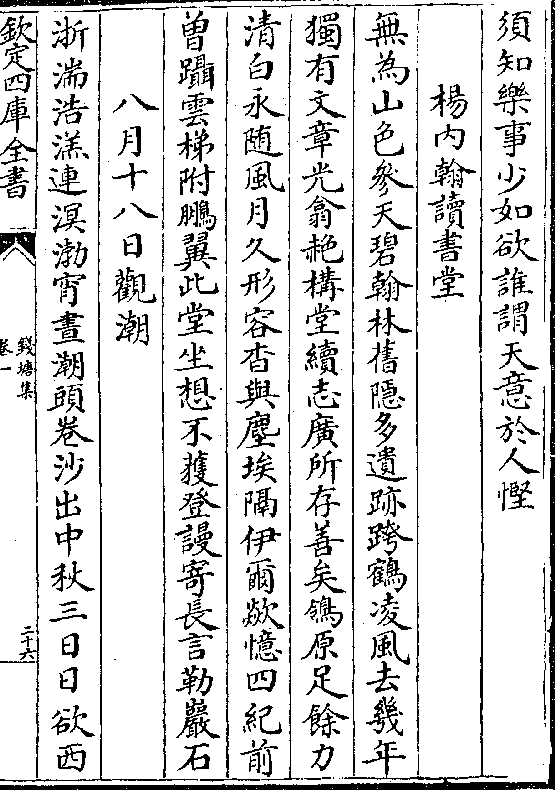 須知樂事少如欲誰謂天意於人慳
楊内翰讀書堂
無為山色參天碧翰林舊隱多遺跡跨鶴凌風去幾年
獨有文章光翕赩構堂續志廣所存善矣鴒原足餘力
清白永随風月久形容杳與塵埃隔伊爾歘憶四紀前
曽躡雲梯附鵬翼此堂坐想不獲登謾寄長言勒巖石
八月十八日觀潮
浙湍浩渺連溟渤宵晝潮頭卷沙出中秋三日日欲西
欽定四庫全書
錢塘集
卷一
二十六